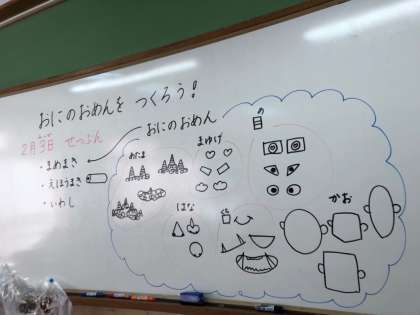 おにのおめんを つくろう!
2月3日 せつぶん
・まめまき
・えほうまき
・いわし
おにのおめん
あたま
まゆげ
目
はな
口
かお